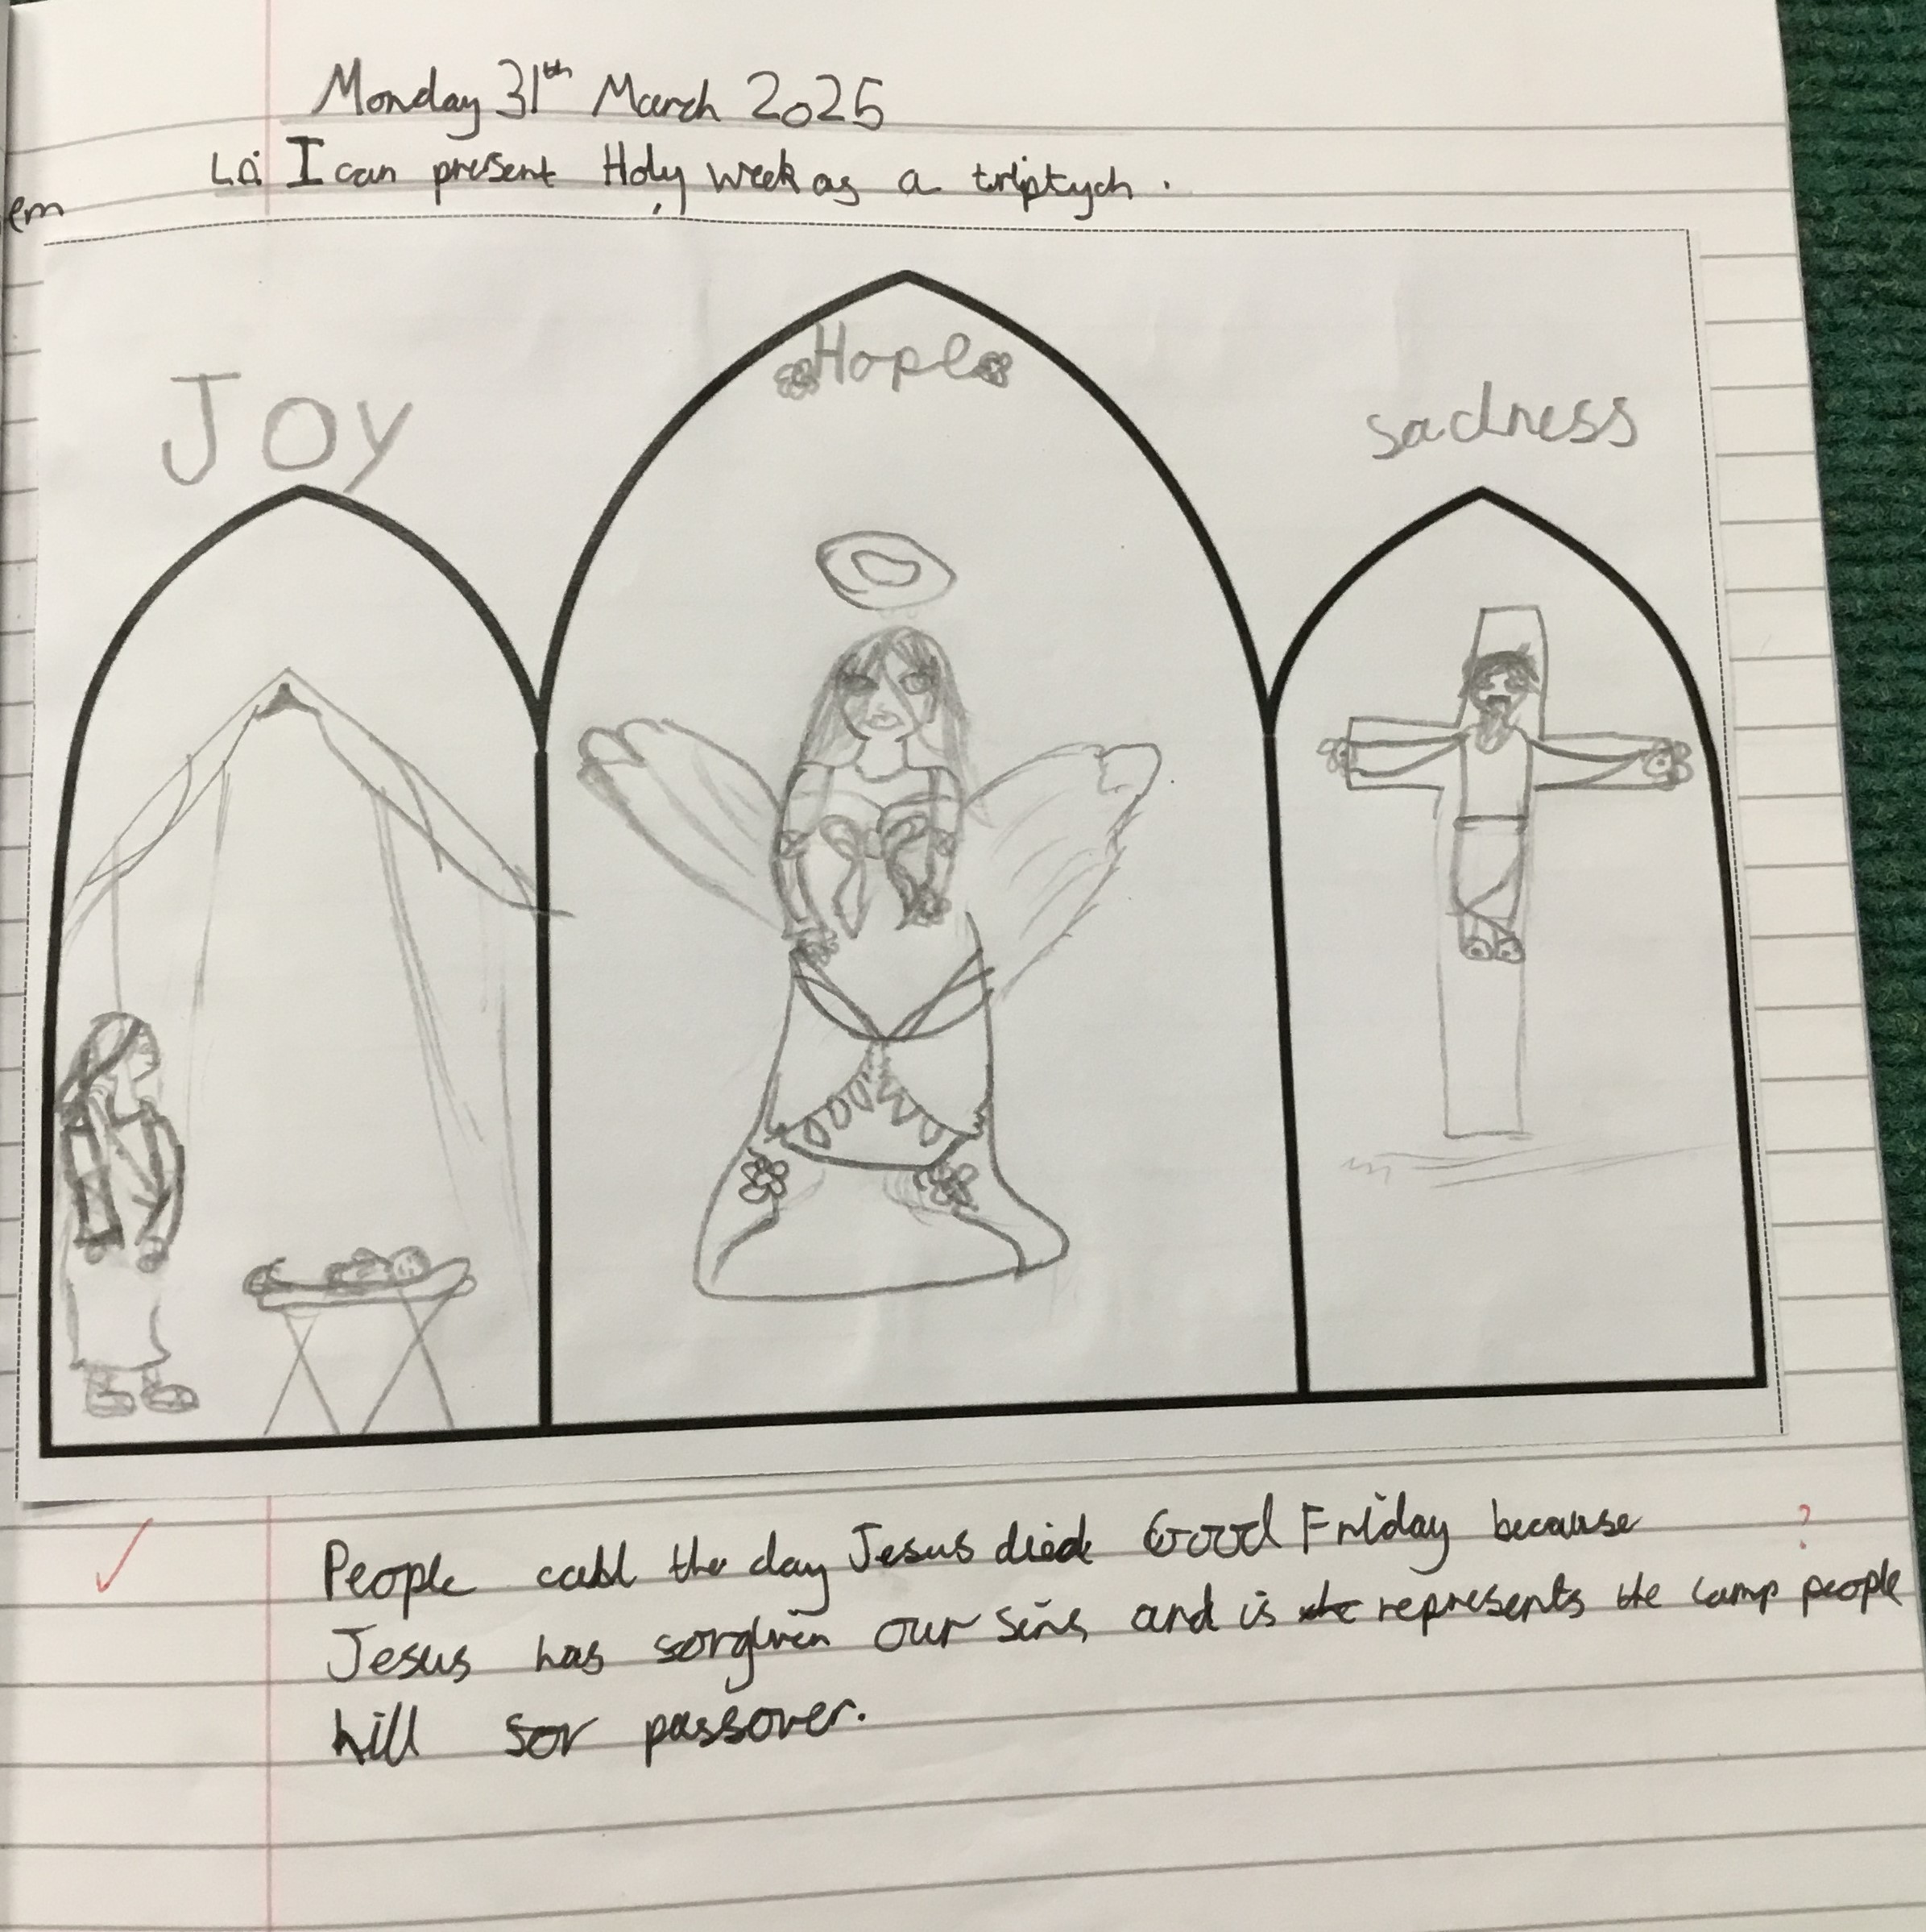 Monday 31th March 2025
LO: I can present Holy week as a triptych.
em
Hope
Joy
sadness
People call the day Jesus died Good Friday because
?
Jesus has forgiven our sins and is represents the lamp people
kill for passover.